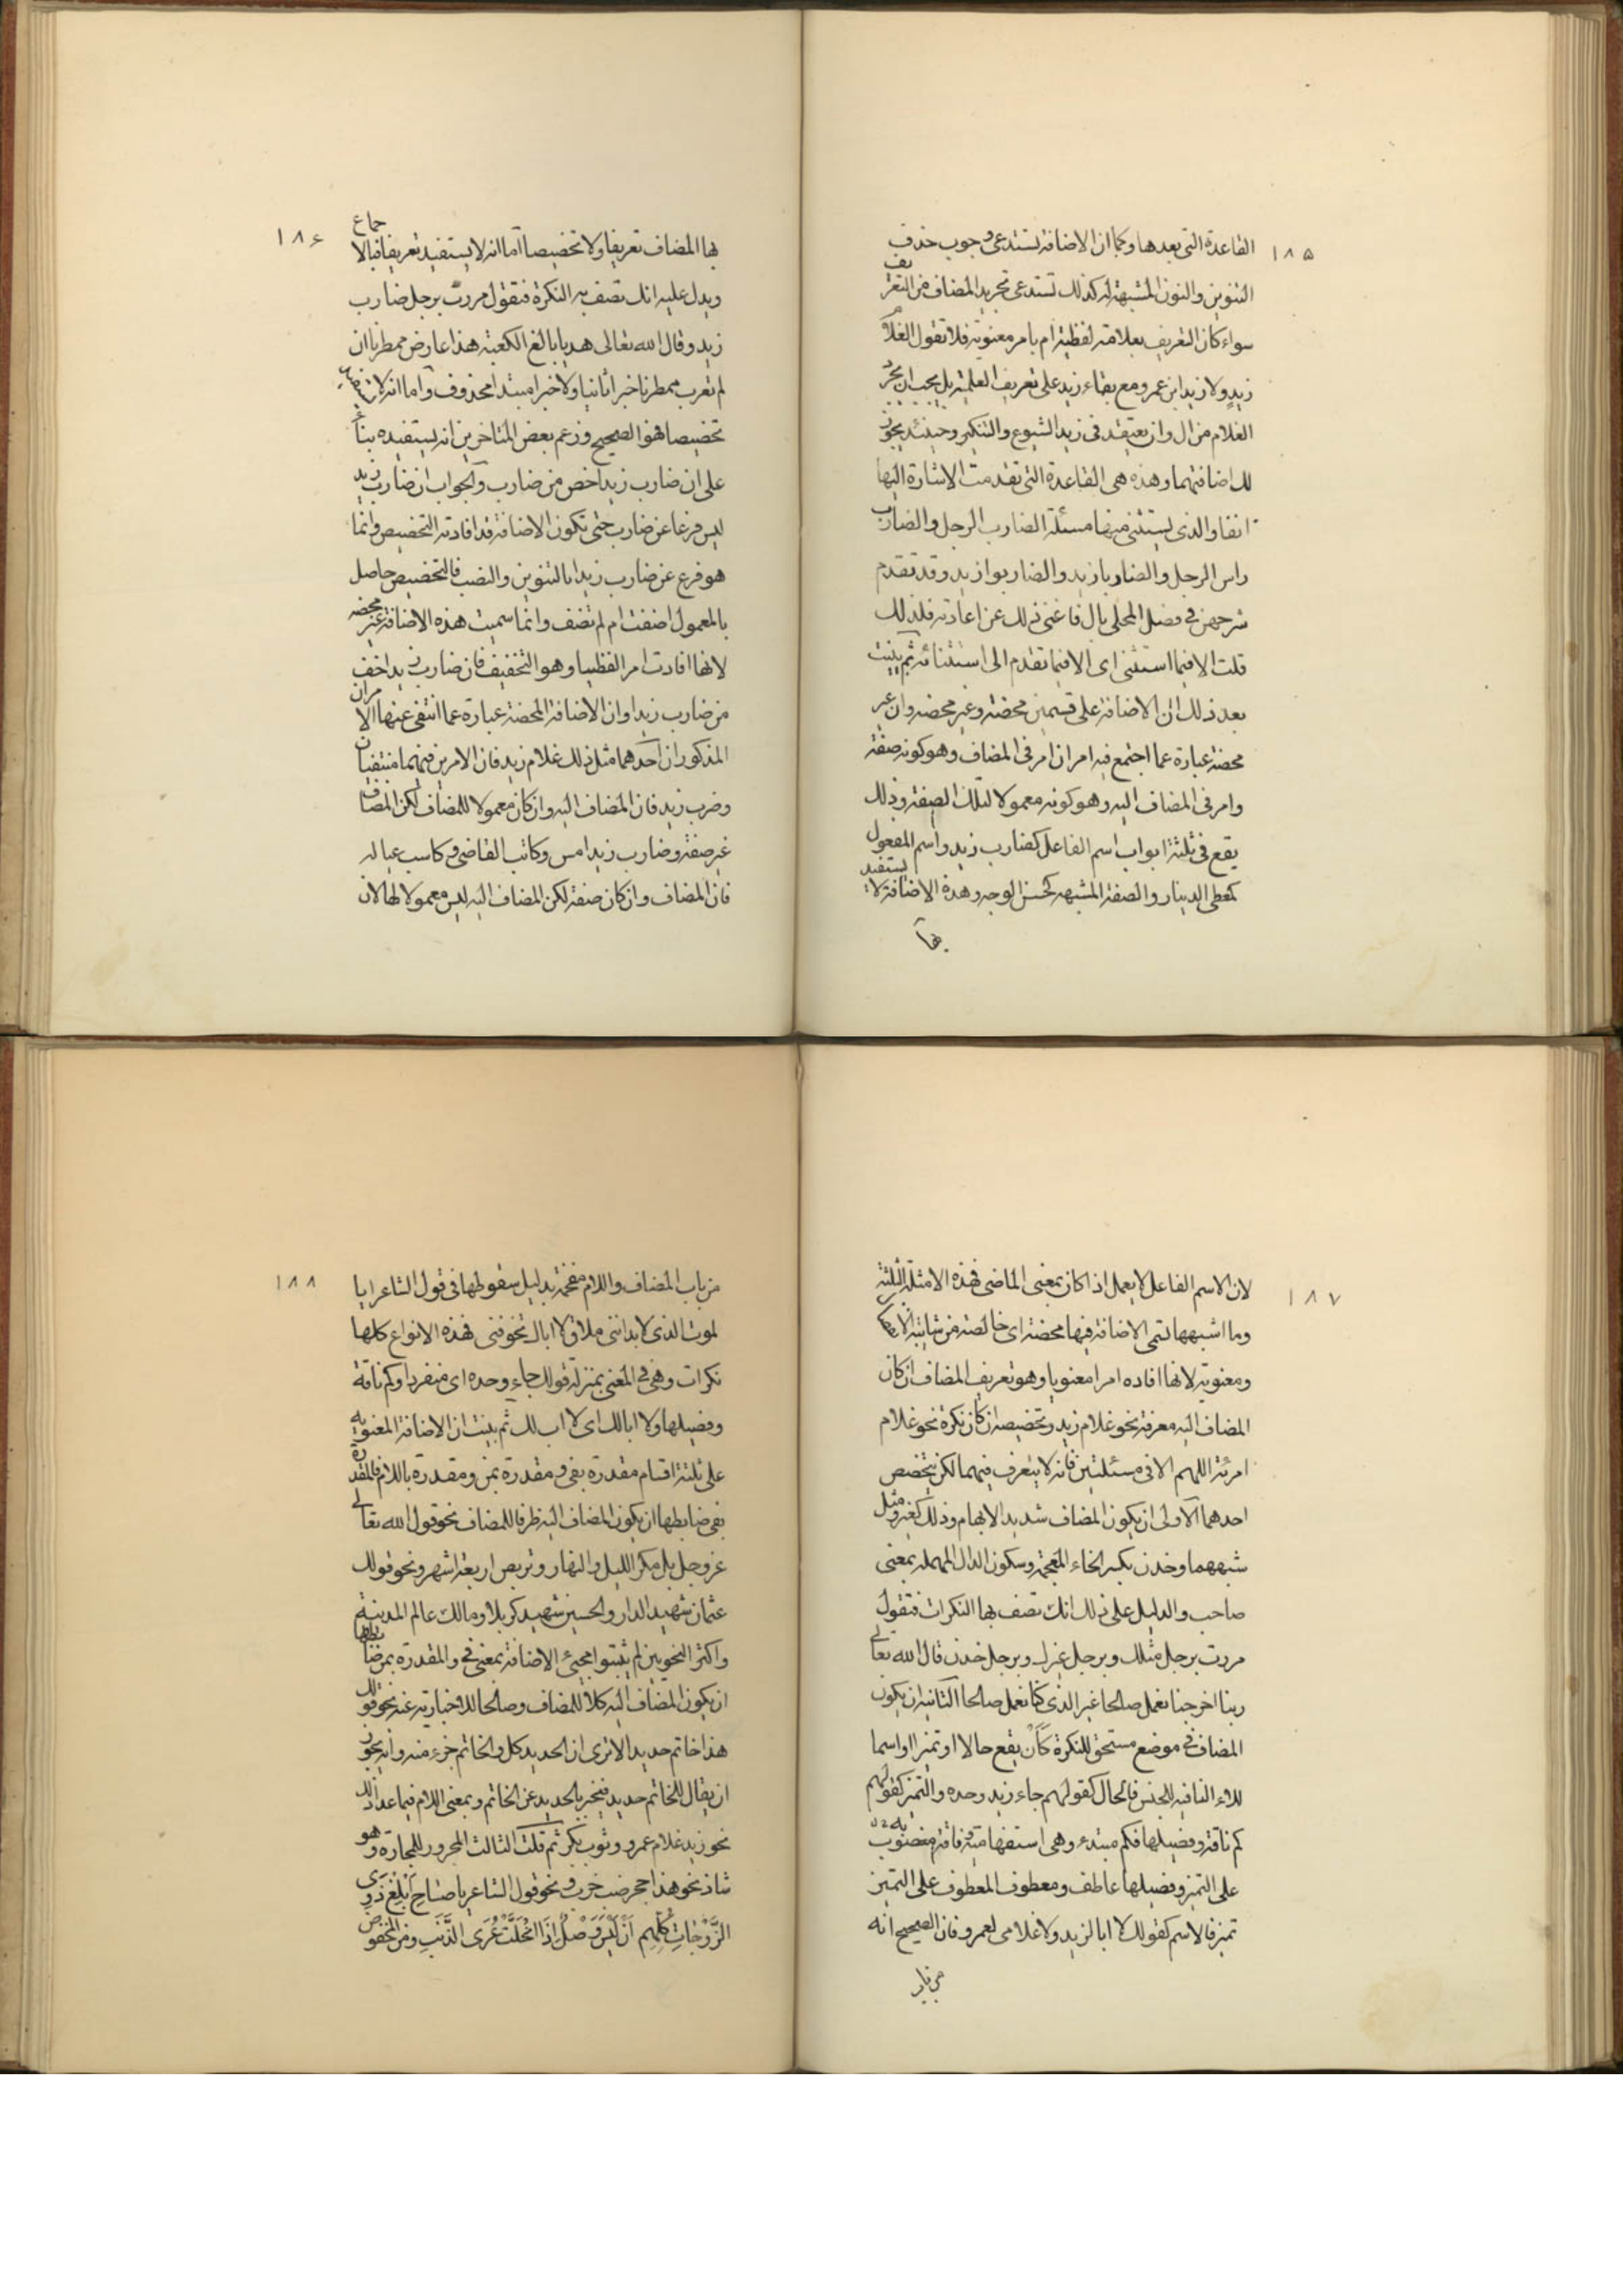 ١٨۵
القاعدة التى بعدها وكما ان الاضافة تستدعى وجوب حذف
التنوين والنون المشبهة له كذلك تستدعى تجريد المضاف من التعريف
سواء كان التعريف بعلامة لفظية ام بامر معنوية فلا تقول الغلام
زيدٍ ولا زيد ابن عمرو مع بقاء زيد على تعريف العلمية بل يجب ان يجرد
الغلام من ال وان يعتقد فى زيد الشيوع والتنكير وحينئذ يجوز
لك اضافتهما وهذه هى القاعدة التى تقدمت الاشارة اليها
انفا والذى يستثنى منها مسئلة الضارب الرجل والضارب
راس الرجل والضاربا زيد والضاربوا زيد وقد تقدم
شرحهن فى فصل المحلى بال فاغنى ذلك عن اعادته فلذلك
قلت الا فيما استثنى اى الا فيما تقدم الى استثنائه ثم بينت
بعد ذلك ان الاضافة على قسمين محضة وغير محضة وان غير
محضة عبارة عما اجتمع فيه امران امر فى المضاف وهو كونه صفة
وامر فى المضاف اليه وهو كونه معمولا لتلك الصفة وذلك
يقع فى ثلثة ابواب اسم الفاعل كضارب زيد واسم المفعول
كمعطى الدينار والصفة المشبهه كحسن الوجه وهذه الاضافة لا يستفيد
بها
١٨۶
بها المضاف تعريفا ولا تخصيصا اما انه لا يستفيد تعريفا فبالاجماع
ويدل عليه انك تصف به النكرة فتقول مررت برجل ضارب
زيد وقال الله تعالى هديا بالغ الكعبة هذا عارض ممطرنا ان
لم تعرب ممطرنا خبرا ثانيا ولا خبرا مبتدا محذوف واما انه لا يستفيد
تخصيصا فهو الصحيح وزعم بعض المتاخرين انه يستفيده بناءً
على ان ضارب زيد اخص من ضارب والجواب ان ضارب زيد
ليس فرعا عن ضارب حتى تكون الاضافة قد افادته التخصيص وانما
هو فرع عن ضارب زيدا بالتنوين والنصب فالتخصيص حاصل
بالمعمول اضفت ام لم تضف وانما سميت هذه الاضافة غير محضة
لانها افادت امرا لفظيا وهو التخفيف فان ضارب زيد اخف
من ضارب زيدا وان الاضافة المحضة عبارة عما انتفى عنها الامران
المذكوران احدهما مثل ذلك غلام زيد فان الامرين فيهما منتفيان
وضرب زيد فان المضاف اليه وان كان معمولا للمضاف لكن المضاف
غير صفة وضارب زيد امس وكاتب القاضى وكاسب عياله
فان المضاف وان كان صفة لكن المضاف اليه ليس معمولا لها لان
١٨٧
لان الاسم الفاعل لا يعمل اذا كان بمعنى الماضى فهذه الامثلة الثلثة
وما اشبهها تسمى الاضافة فيها محضة اى خالصة من شائبة الانفصال
ومعنوية لانها افاده امرا معنويا وهو تعريف المضاف ان كان
المضاف اليه معرفة نحو غلام زيد وتخصيصه ان كان نكرة نحو غلام
امرئة اللهم الا فى مسئلتين فانه لا يتعرف فيهما لكن يتخصص
احدهما الاولى ان يكون المضاف شديد الابهام وذلك كغير ومثل
شبههما وخدن بكسر الخاء المعجمة وسكون الدال المهملة بمعنى
صاحب والدليل على ذلك انك تصف بها النكرات فتقول
مررت برجل مثلك وبرجل غيرك وبرجل خدن قال الله تعالى
ربنا اخرجنا نعمل صالحا غير الذى كنا نعمل صالحا الثانية ان يكون
المضاف فى موضع مستحق للنكرة كأن يقع حالا او تميزا او اسما
للاء النافية للجنس فالحال كقولهم جاء زيد وحده والتميز كقولهم
كم ناقة وفصيلها فكم مبتدء وهى استفهامية وناقة منصوب
على التميز وفصيلها عاطف ومعطوف المعطوف على التميز
تميز فالاسم كقولك لا ابا لزيد ولا غلامى لعمرو فان الصحيح انه
من باب
١٨٨
من باب المضاف واللام مقحمة بدليل سقوطها فى قول الشاعر ابا
لموت الذى لا بد انى ملاق لا اباك تخوفنى فهذه الانواع كلها
نكرات وهى فى المعنى بمنزلة قولك جاء وحده اى منفردا وكم ناقة
وفصيلها ولا ابا لك اى لا اب لك ثم بينت ان الاضافة المعنوية
على ثلثة اقسام مقدرة بفى ومقدرة بمن ومقدرة باللام فالمقدرة
بفى ضابطها ان يكون المضاف اليه ظرفا للمضاف نحو قول الله تعالى
عز وجل بل مكر الليل والنهار وتربص اربعة اشهر ونحو قولك
عثمان شهيد الدار والحسين شهيد كربلا ومالك عالم المدينة
واكثر النحويين لم يثبتوا مجيئ الاضافة بمعنى فى والمقدرة بمن ضابطها
ان يكون المضاف اليه كلا للمضاف وصالحا للاخبار به عنه نحو قولك
هذا خاتم حديد الا ترى ان الحديد كل والخاتم جزء منه وانه يجوز
ان يقال للخاتم حديد فيخبر بالحديد عن الخاتم وبمعنى اللام فيما عدا ذلك
نحو زيد غلام عمرو وثوب بكر ثم قلت الثالث المجرور للمجاورة وهو
شاذ نحو هذا جحر ضب خرب ونحو قول الشاعر يا صَاحِ بَلِّغْ ذَوِى
الزَّوْجَاتِ كُلِّهِم أَنْ لَيْسَ وَصْلٌ إِذَا انْحَلَّتْ عُرَى الذَّنَبِ ومن المخفوض